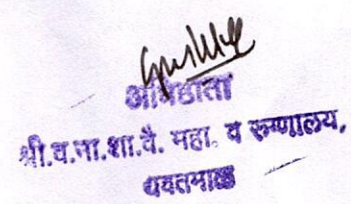 अधिष्ठाता
श्री.व.ना.शा.वै. महा. व रुग्णालय,
यवतमाळ